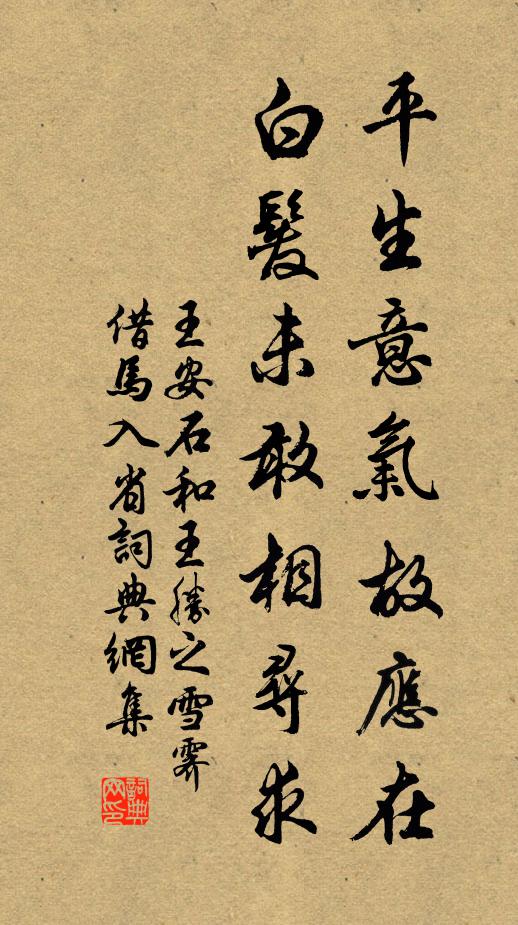 平生意氣故應在
白髮未敢相尋求
王安石和王勝之雪霽
借馬入省詞典網集
詞典网印